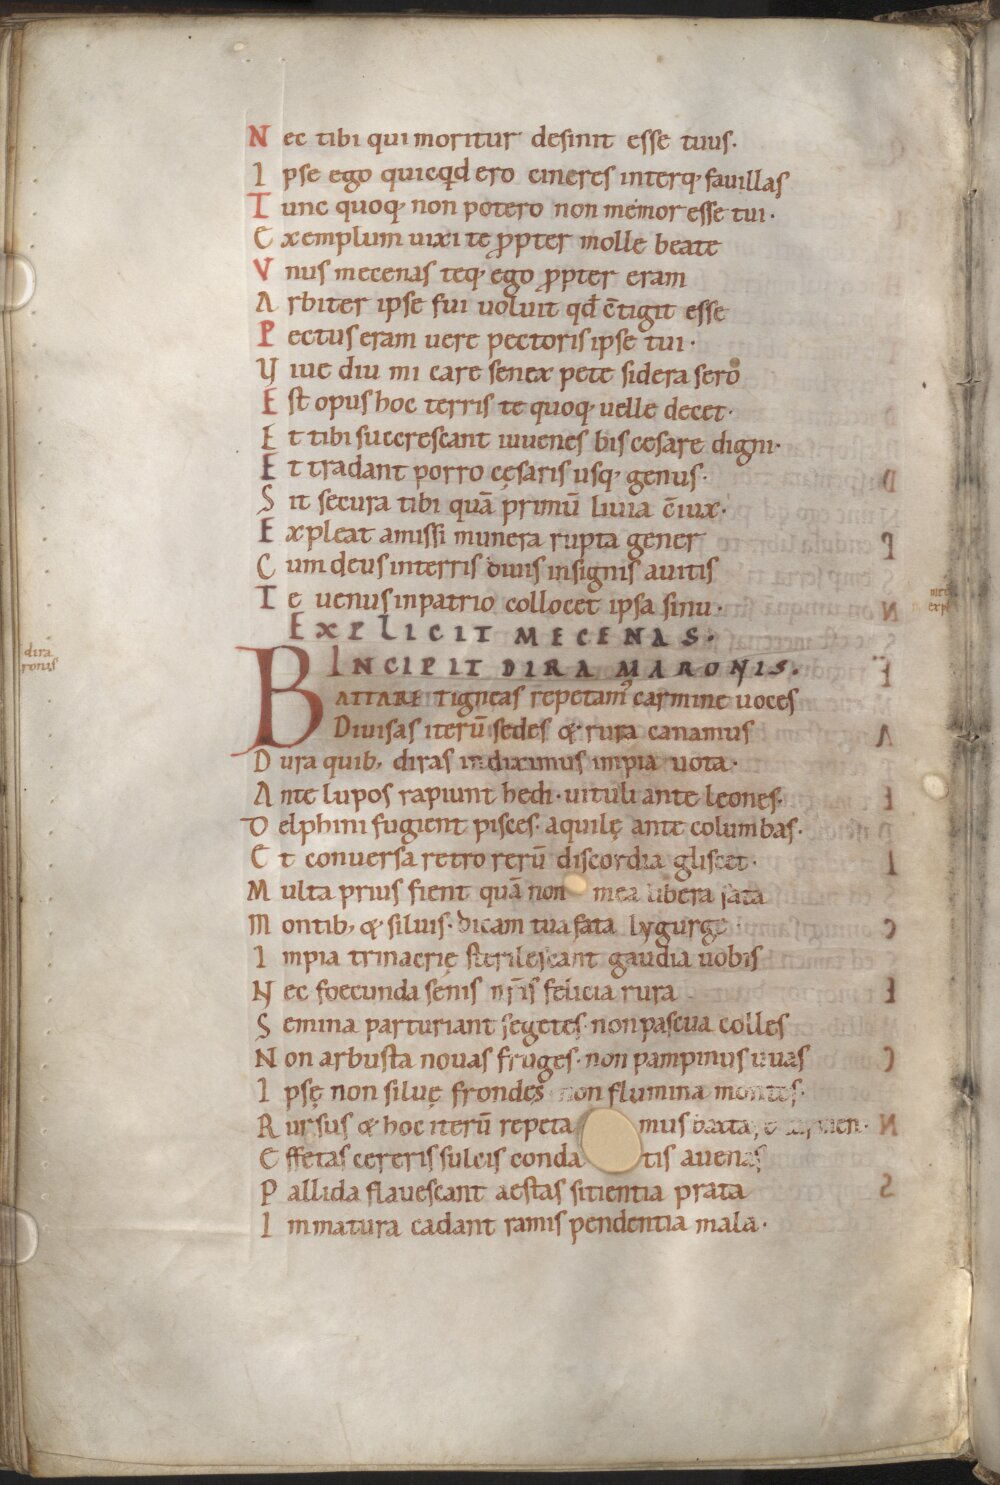 Nec tibi qui moritur desinit esse tuus.
Ipse ego quicq̇d ero cineres interq; fauillas
Tunc quoq; non potero non memor esse tui.
Exemplum uixi te ꝓpter molle beate
Vnus mecenas teq; ego ꝓpter eram
Arbiter ipse fui uoluit qd̄ c̄tigit esse
Pectus eram uere pectoris ipse tui.
Viue diu mi care senex pete sidera sero
Est opus hoc terris te quoq; uelle decet.
Et tibi succrescant iuuenes bis cesare digni.
Et tradant porro cęsaris usq; genus.
Sit secura tibi quā primū liuia c̄iux.
Expleat amissi munera rupta gener
Cum deus interris diuis insignis auitis
Te uenus inpatrio collocet ipsa sinu.
EXPLICIT MECENAS.
INCIPIT DIRA MARONIS.
dira
ronis
BATTARE tigneas repetam᷒ carmine uoces
Diuisas iterū sedes & rura canamus
Dura quib; diras indiximus impia uota.
Ante lupos rapiunt hedi. uituli ante leones.
Delphini fugient pisces. aquilę ante columbas.
Et conuersa retro rerū discordia gliscet.
Multa prius fient quā non mea libera fata
Montib; & siluis. dicam tua fata lygurge
Impia trinacrię sterilescant gaudia uobis
Nec foecunda senis nr̄is felicia rura
Semina parturiant segetes. non pascua colles
Non arbusta nouas fruges. non pampinus uuas
Ipsę non siluę frondes non flumina montes.
Rursus & hoc iterū repeta mus
Effetas cereris sulcis conda tis auenas
Pallida flauescant aestas sitientia prata
Immatura cadant ramis pendentia mala.